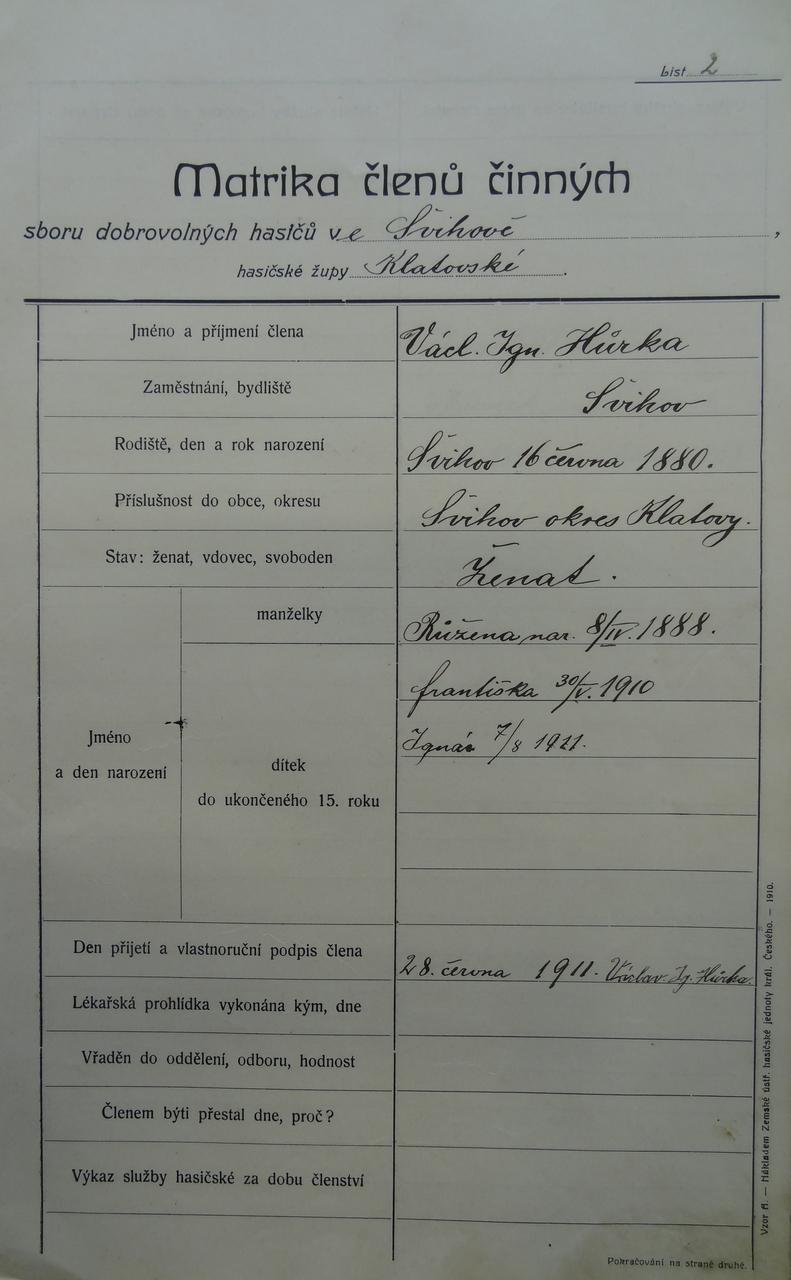 List 2
Matrika členů činných
sboru dobrovolných hasičů ve Švihově,
hasičské župy Klatovské.
Jméno a příjmení člena Václ. Ign. Hůrka
Zaměstnání, bydliště Švihov
Rodiště, den a rok narození Švihov 16 června 1880.
Příslušnost do obce, okresu Švihov okres Klatovy.
Stav: ženat, vdovec, svoboden Ženat.
manželky Růžena nar. 8/IV. 1888.
Františka 30/V. 1910
Jméno Ignác 7/8 1911.
a den narození
dítek
do ukončeného 15. roku
Den přijetí a vlastnoruční podpis člena 28. června 1911. Václav Ig. Hůrka.
Lékařská prohlídka vykonána kým, dne
Vřaděn do oddělení, odboru, hodnost
Členem býti přestal dne, proč?
Výkaz služby hasičské za dobu členství
Vzor A. — Nákladem Zemské ústř. hasičské jednoty král. Českého. — 1910.
Pokračování na straně druhé.